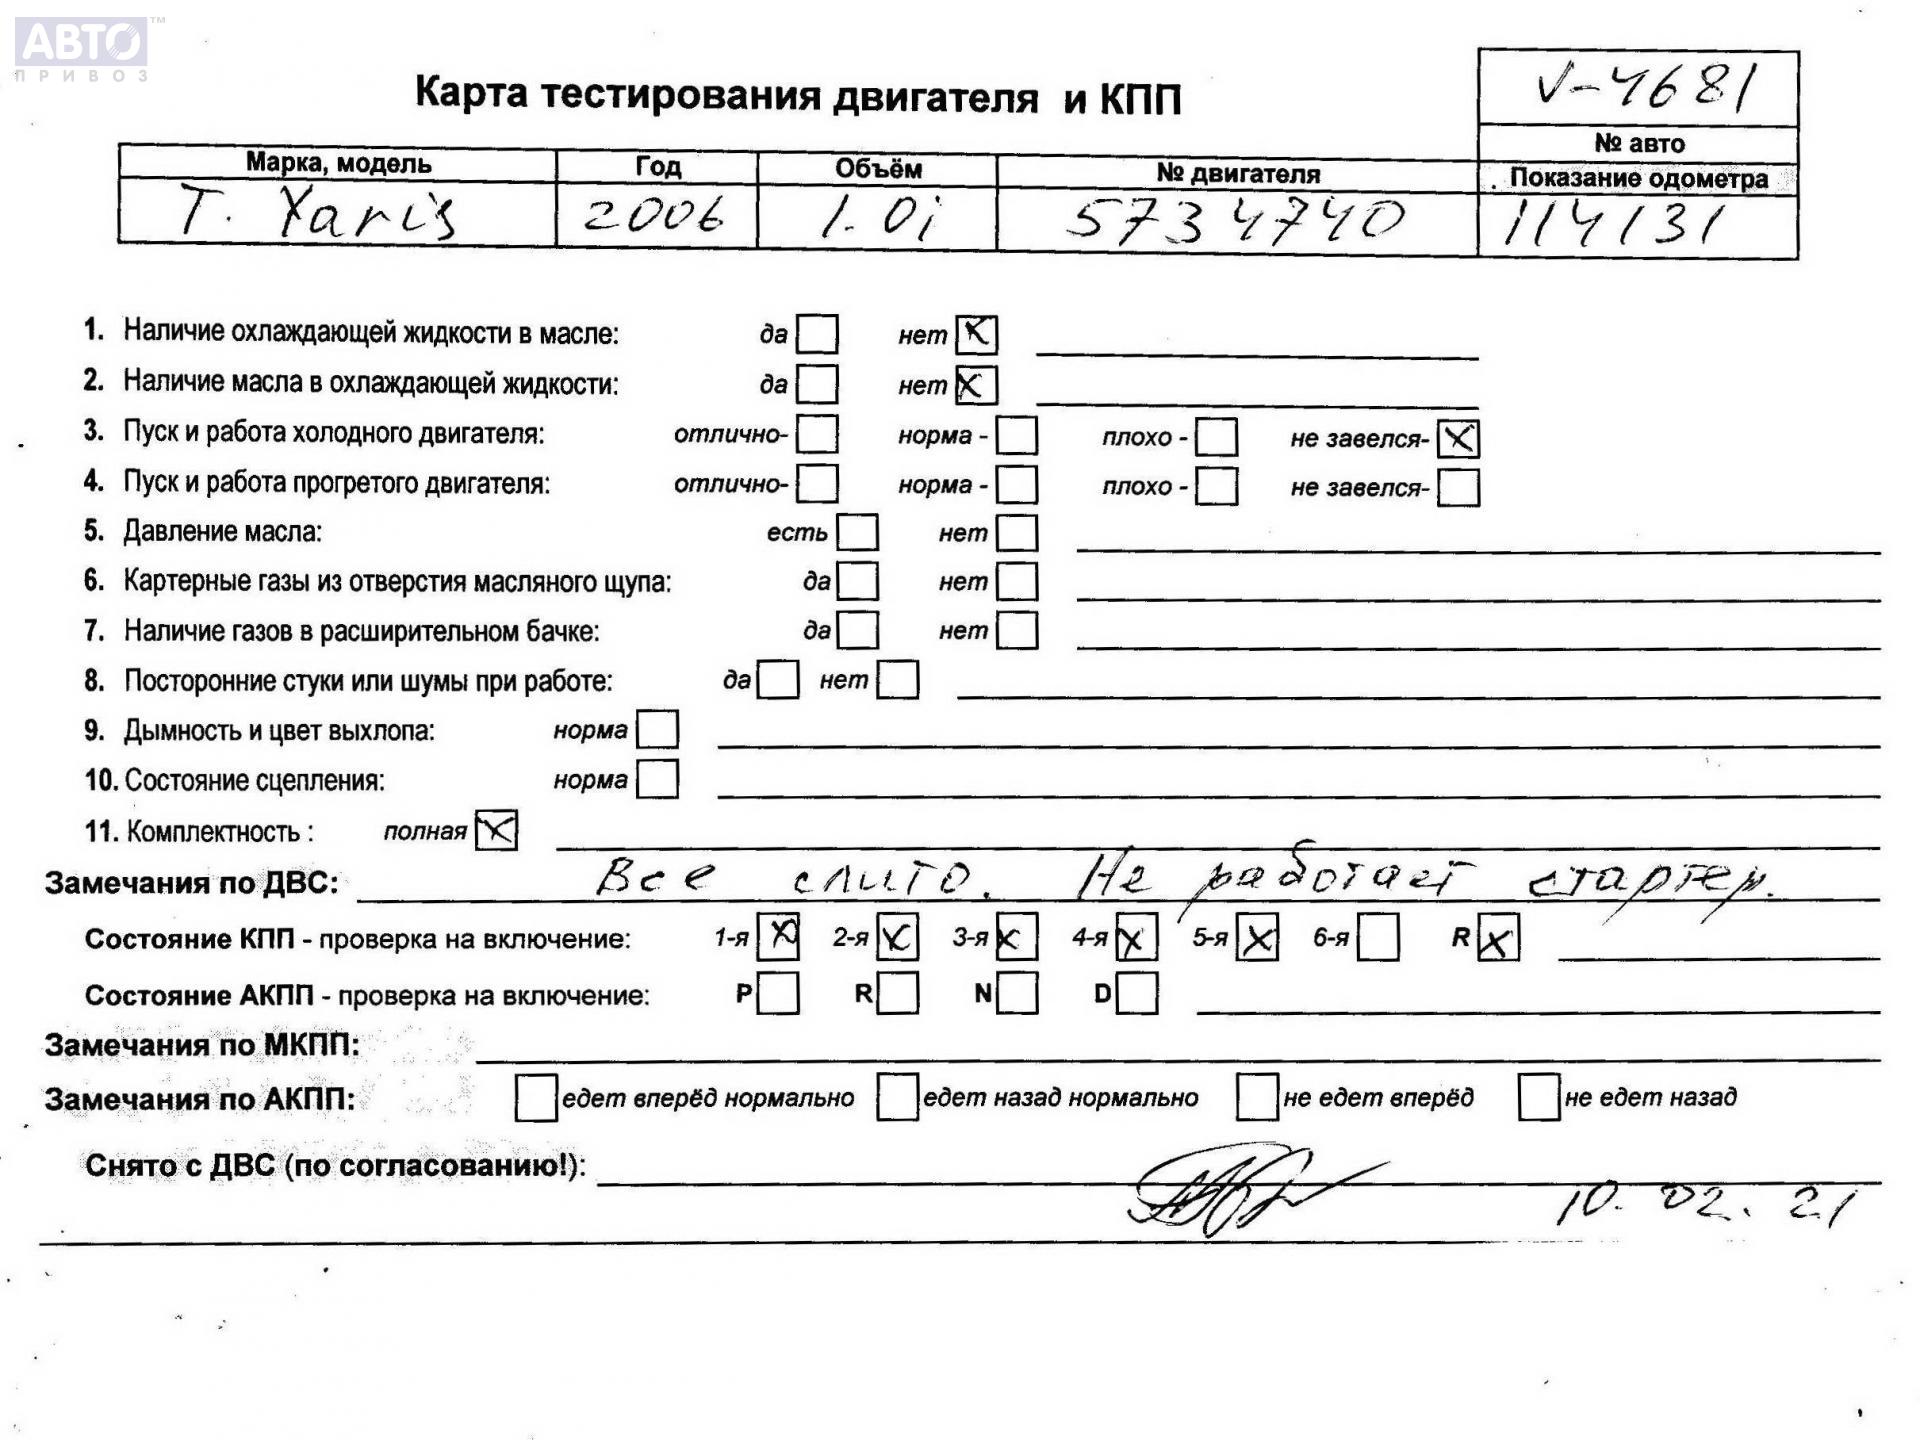 АВТО™
ПРИВОЗ
Карта тестирования двигателя и КПП
V-4681
№ авто
Марка, модель Год Объём № двигателя Показание одометра
T. Yaris 2006 1.0i 5734740 114131
1. Наличие охлаждающей жидкости в масле: да нет x
2. Наличие масла в охлаждающей жидкости: да нет x
3. Пуск и работа холодного двигателя: отлично- норма - плохо - не завелся- x
4. Пуск и работа прогретого двигателя: отлично- норма - плохо - не завелся-
5. Давление масла: есть нет
6. Картерные газы из отверстия масляного щупа: да нет
7. Наличие газов в расширительном бачке: да нет
8. Посторонние стуки или шумы при работе: да нет
9. Дымность и цвет выхлопа: норма
10. Состояние сцепления: норма
11. Комплектность : полная x
Замечания по ДВС: Все слито. Не работает стартер.
Состояние КПП - проверка на включение: 1-я x 2-я x 3-я x 4-я x 5-я x 6-я R x
Состояние АКПП - проверка на включение: P R N D
Замечания по МКПП:
Замечания по АКПП: едет вперёд нормально едет назад нормально не едет вперёд не едет назад
Снято с ДВС (по согласованию!):
10.02.21